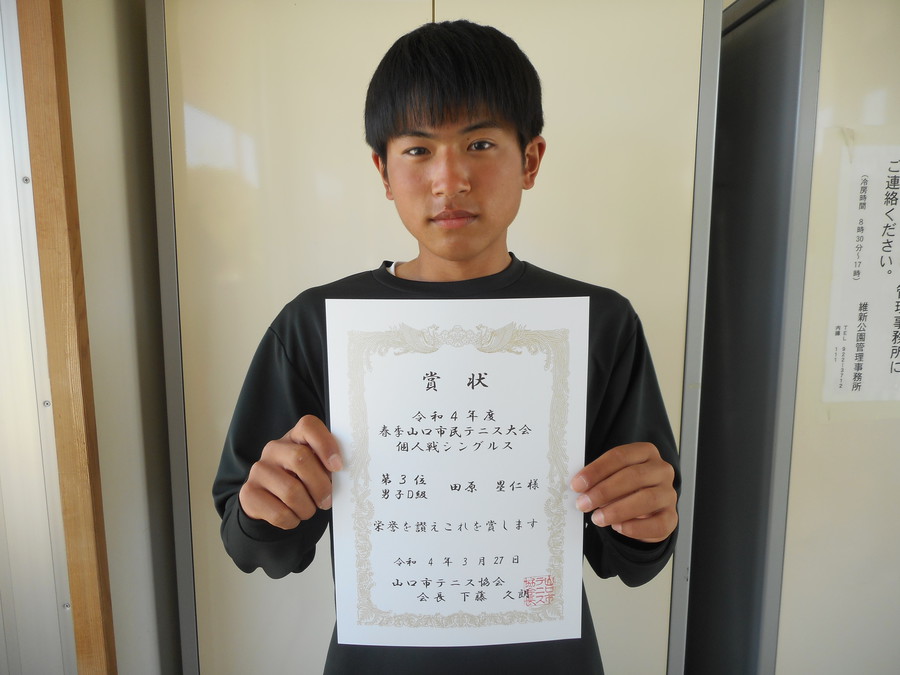 賞状
令和4年度
春季山口市民テニス大会
個人戦シングルス
第3位
男子D級
田原 塁仁様
栄誉を讃えこれを賞します
令和4年3月27日
山口市テニス協会
会長 下藤 久朗
山口市
テニス
協会長
管理事務所に
ご連絡ください。
(冷房時間 8時30分~17時)
維新公園管理事務所